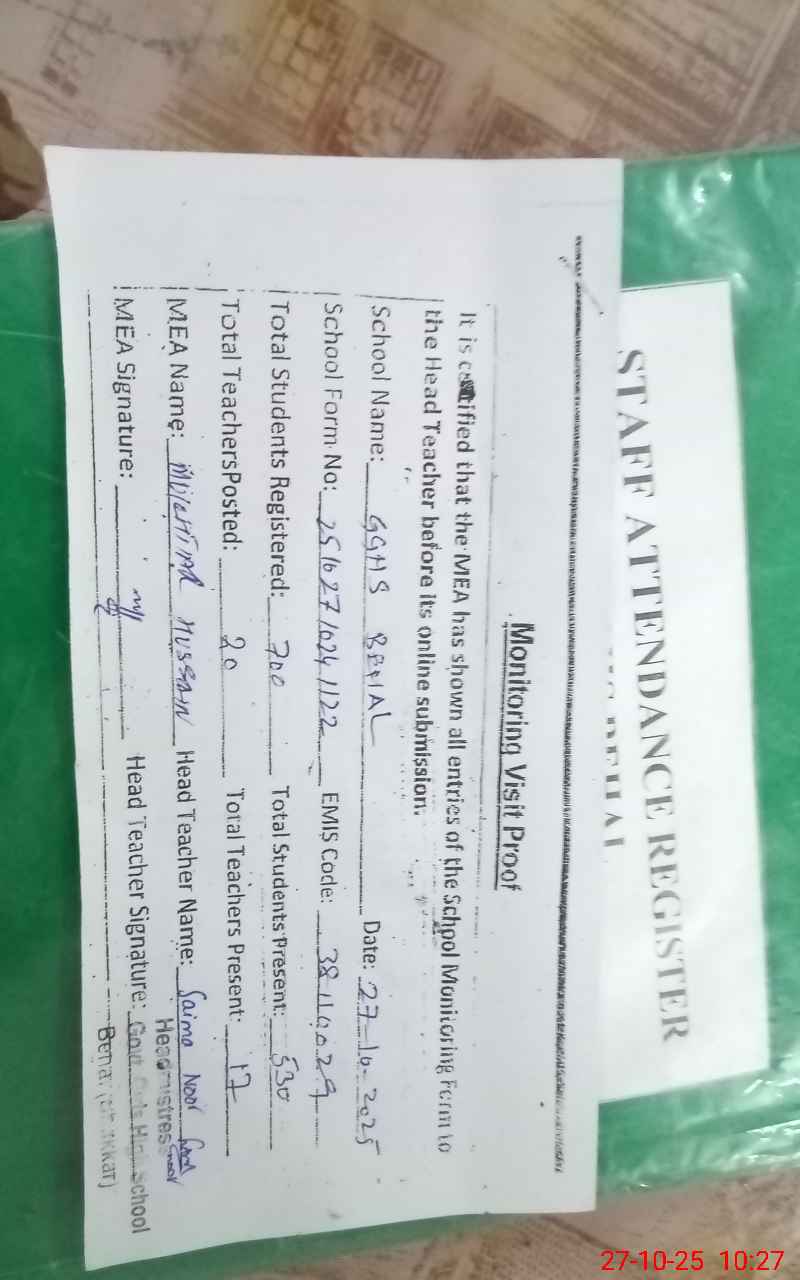 STAFF ATTENDANCE REGISTER
Monitoring Visit Proof
It is certified that the MEA has shown all entries of the School Monitoring Form to
the Head Teacher before its online submission.
School Name: GGHS BEHAL Date: 27-10-2025
School Form No: 25162710241122 EMIS Code: 38110029
Total Students Registered: 700 Total Students Present: 530
Total TeachersPosted: 20 Total Teachers Present: 17
MEA Name: Hussain Head Teacher Name: Saima Noor
MEA Signature: Head Teacher Signature:
Headmistress
Govt. Girls High School
27-10-25 10:27